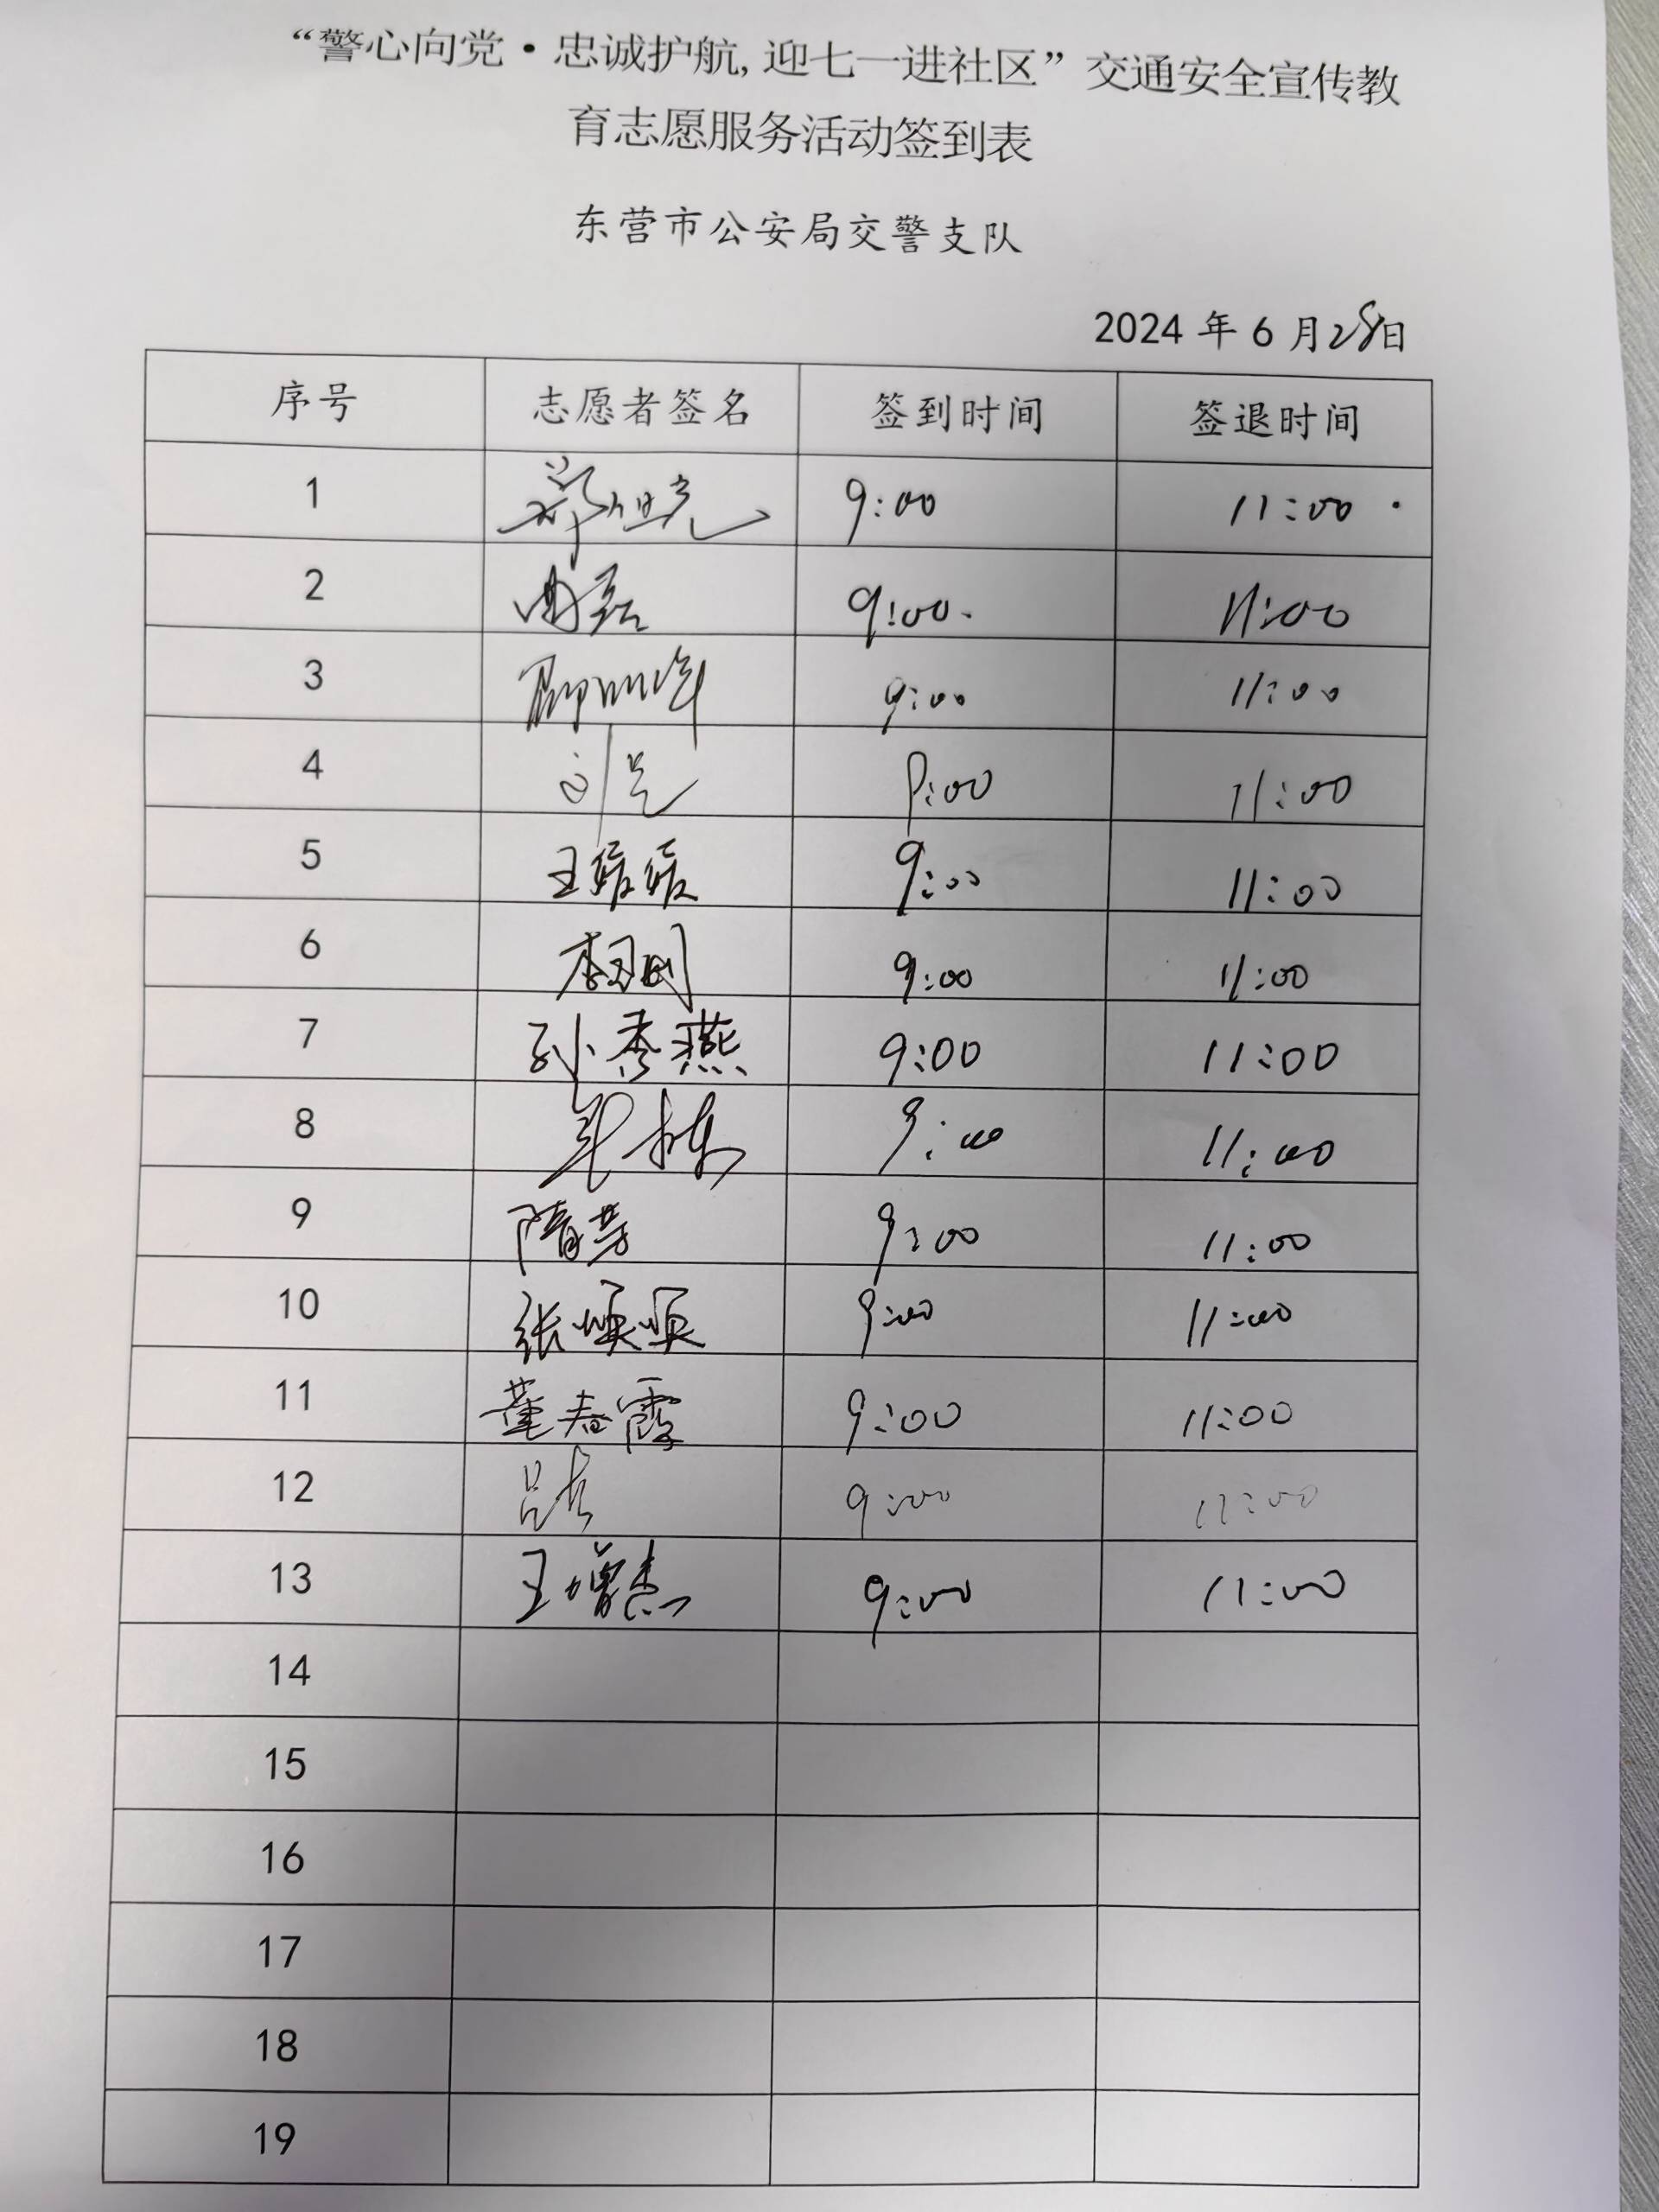 “警心向党·忠诚护航,迎七一进社区”交通安全宣传教
育志愿服务活动签到表
东营市公安局交警支队
2024 年 6 月28日
序号 志愿者签名 签到时间 签退时间
1 9:00 11:00
2 曲磊 9:00 11:00
3 9:00 11:00
4 9:00 11:00
5 王媛媛 9:00 11:00
6 9:00 11:00
7 孙秀燕 9:00 11:00
8 9:00 11:00
9 隋芳 9:00 11:00
10 张顺顺 9:00 11:00
11 董春霞 9:00 11:00
12 9:00 11:00
13 王增杰 9:00 11:00
14
15
16
17
18
19